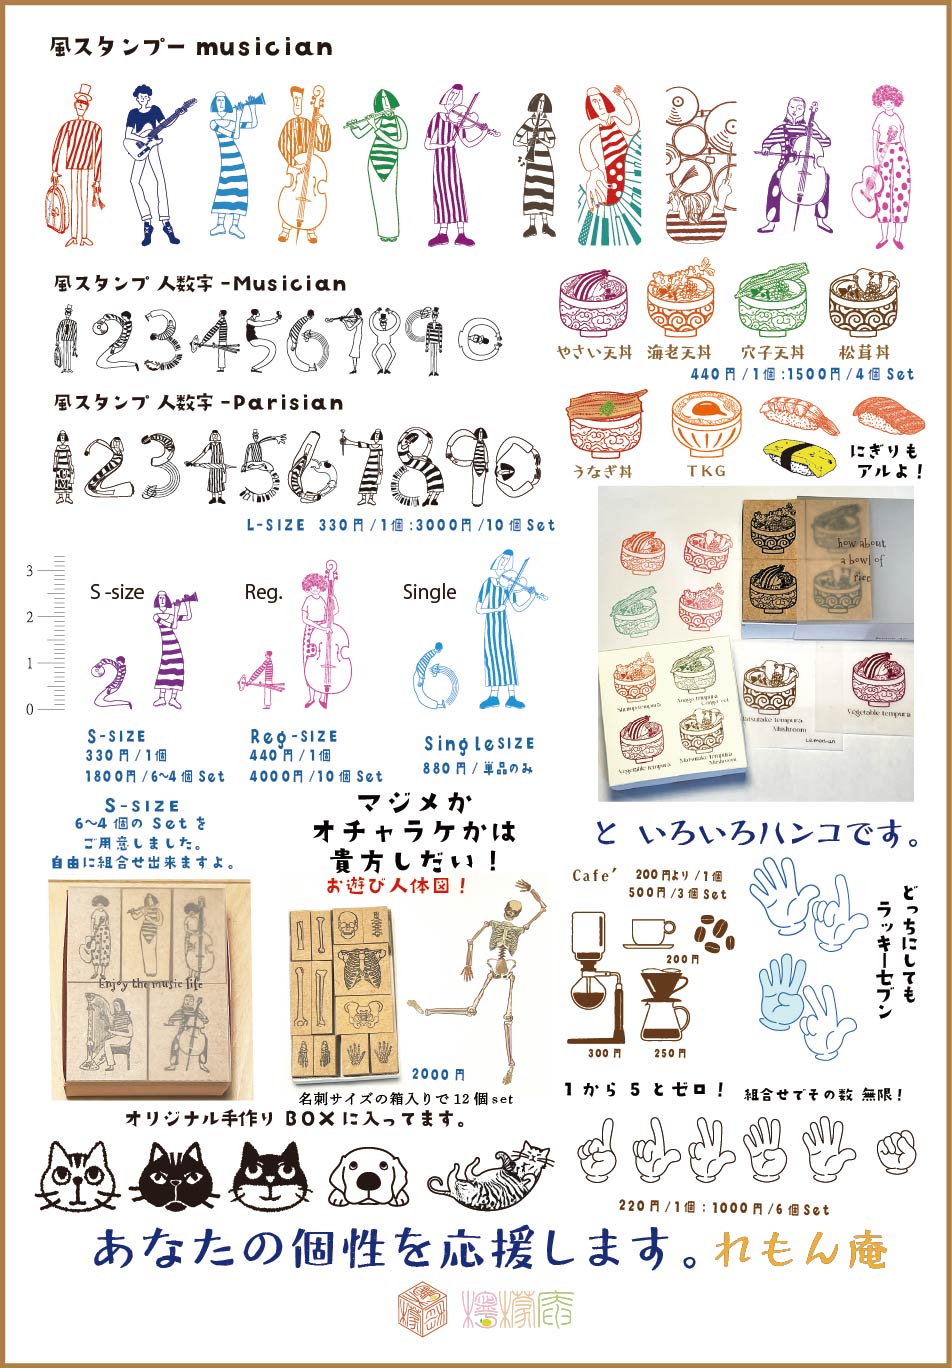 風スタンプー musician
風スタンプ 人数字 -Musician
やさい天丼 海老天丼 穴子天丼 松茸丼
440円/1個:1500円/4個Set
風スタンプ 人数字 -Parisian
うなぎ丼 TKG
にぎりも
アルよ!
L-SIZE 330円/1個:3000円/10個Set
3
2
1
0
S-size Reg. Single
S-SIZE
330円/1個
1800円/6~4個Set
Reg-SIZE
440円/1個
4000円/10個Set
SingleSIZE
880円/単品のみ
how about
a bowl of
rice
Shrimp tempura
Vegetable tempura
Matsutake tempura
Mushroom
Mushroom
Vegetable tempura
Lemon-an
S-SIZE
6~4個のSetを
ご用意しました。
自由に組合せ出来ますよ。
マジメか
オチャラケかは
貴方しだい!
お遊び人体図!
と いろいろハンコです。
Cafe' 200円より/1個
500円/3個Set
200円
300円 250円
どっちにしても
ラッキーセブン
Enjoy the music life
2000円
名刺サイズの箱入りで12個set
オリジナル手作りBOXに入ってます。
1から5とゼロ! 組合せでその数 無限!
220円/1個:1000円/6個Set
あなたの個性を応援します。れもん庵
檸檬庵